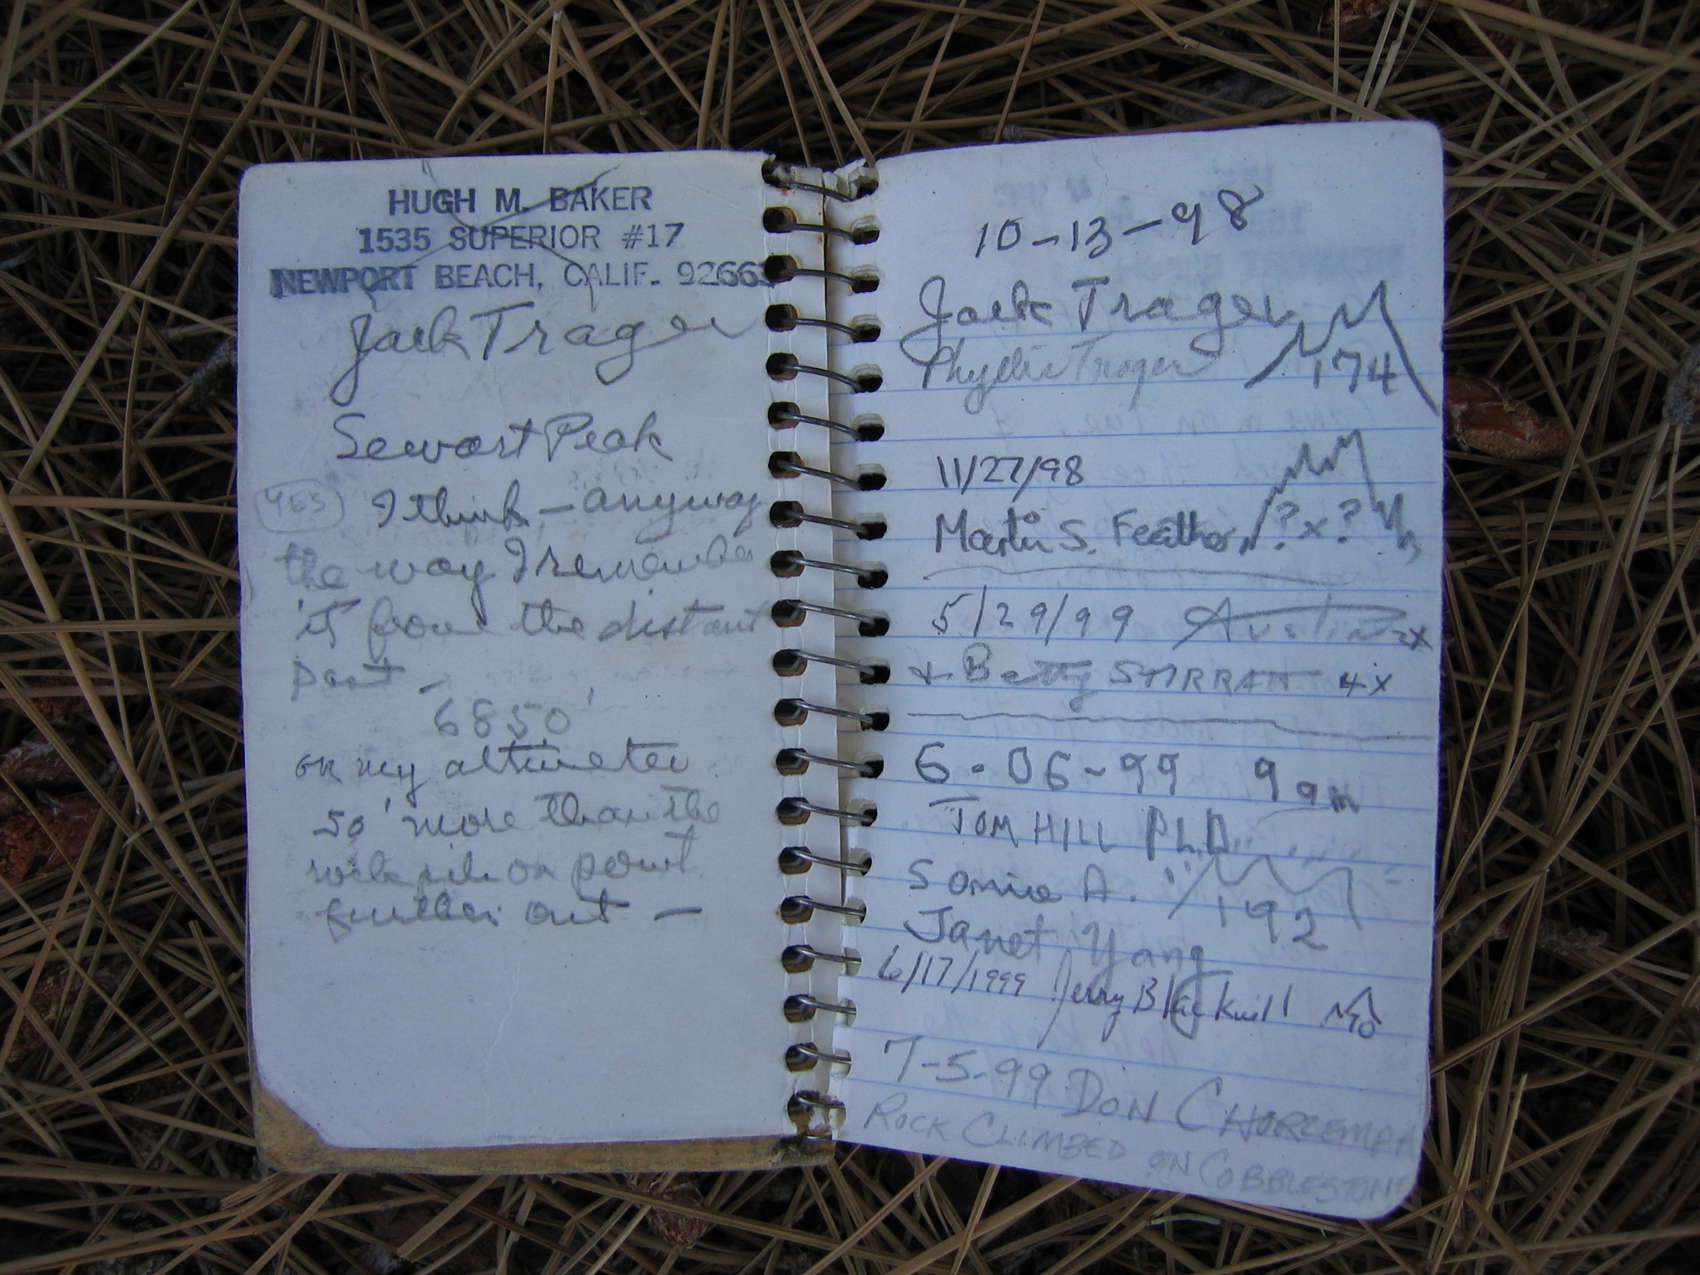 HUGH M. BAKER
1535 SUPERIOR #17
NEWPORT BEACH, CALIF. 92663
Jack Trager
Sewart Peak
I think - anyway
the way I remember
it from the distant
past -
6850'
on my altimeter
50' more than the
rock pile on point
further out -
10-13-98
Jack Trager
Phyllis Trager 174
11/27/98
Martin S. Feather ? x ?
5/29/99 Austin 2x
+ Betty 4x
6-06-99 9am
TOM HILL PLD
Sonia A. 192
Janet Yang
6/17/1999 Jerry
7-5-99 DON
ROCK CLIMBED ON COBBLESTONE